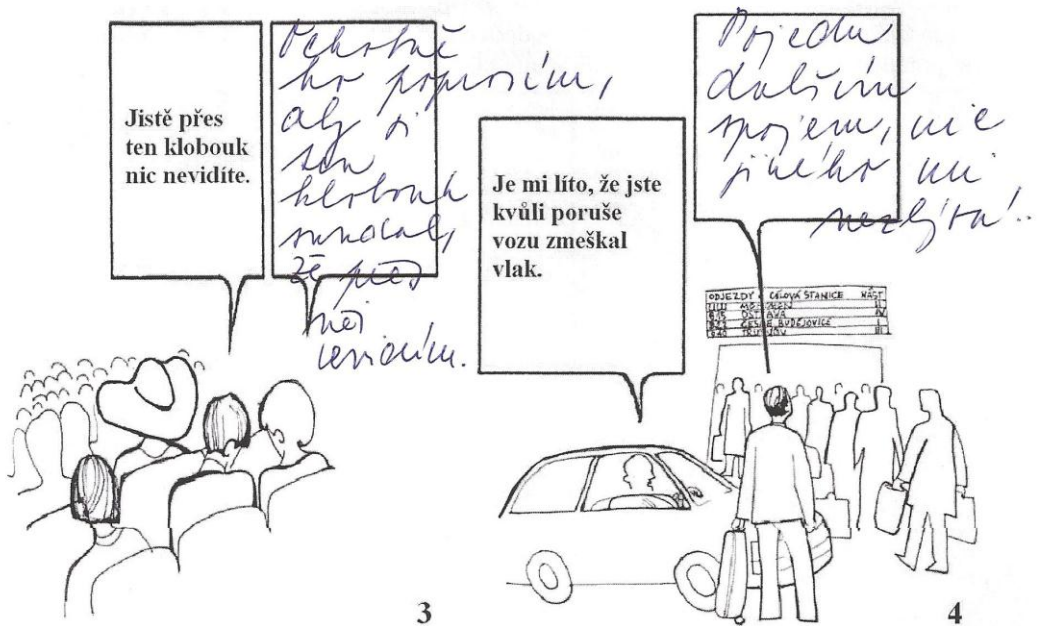 Jistě přes
ten klobouk
nic nevidíte.
Ochotně
ho poprosím,
aby si
ten
klobouk
sundal,
že přes
něj
nevidím.
Je mi líto, že jste
kvůli poruše
vozu zmeškal
vlak.
Pojedu
dalším
spojem, nic
jiného mi
nezbývá..
ODJEZDY CÍLOVÁ STANICE NÁST
OSTAVA IV
ČESKÉ BUDĚJOVICE I
TRUTNOV III
3
4